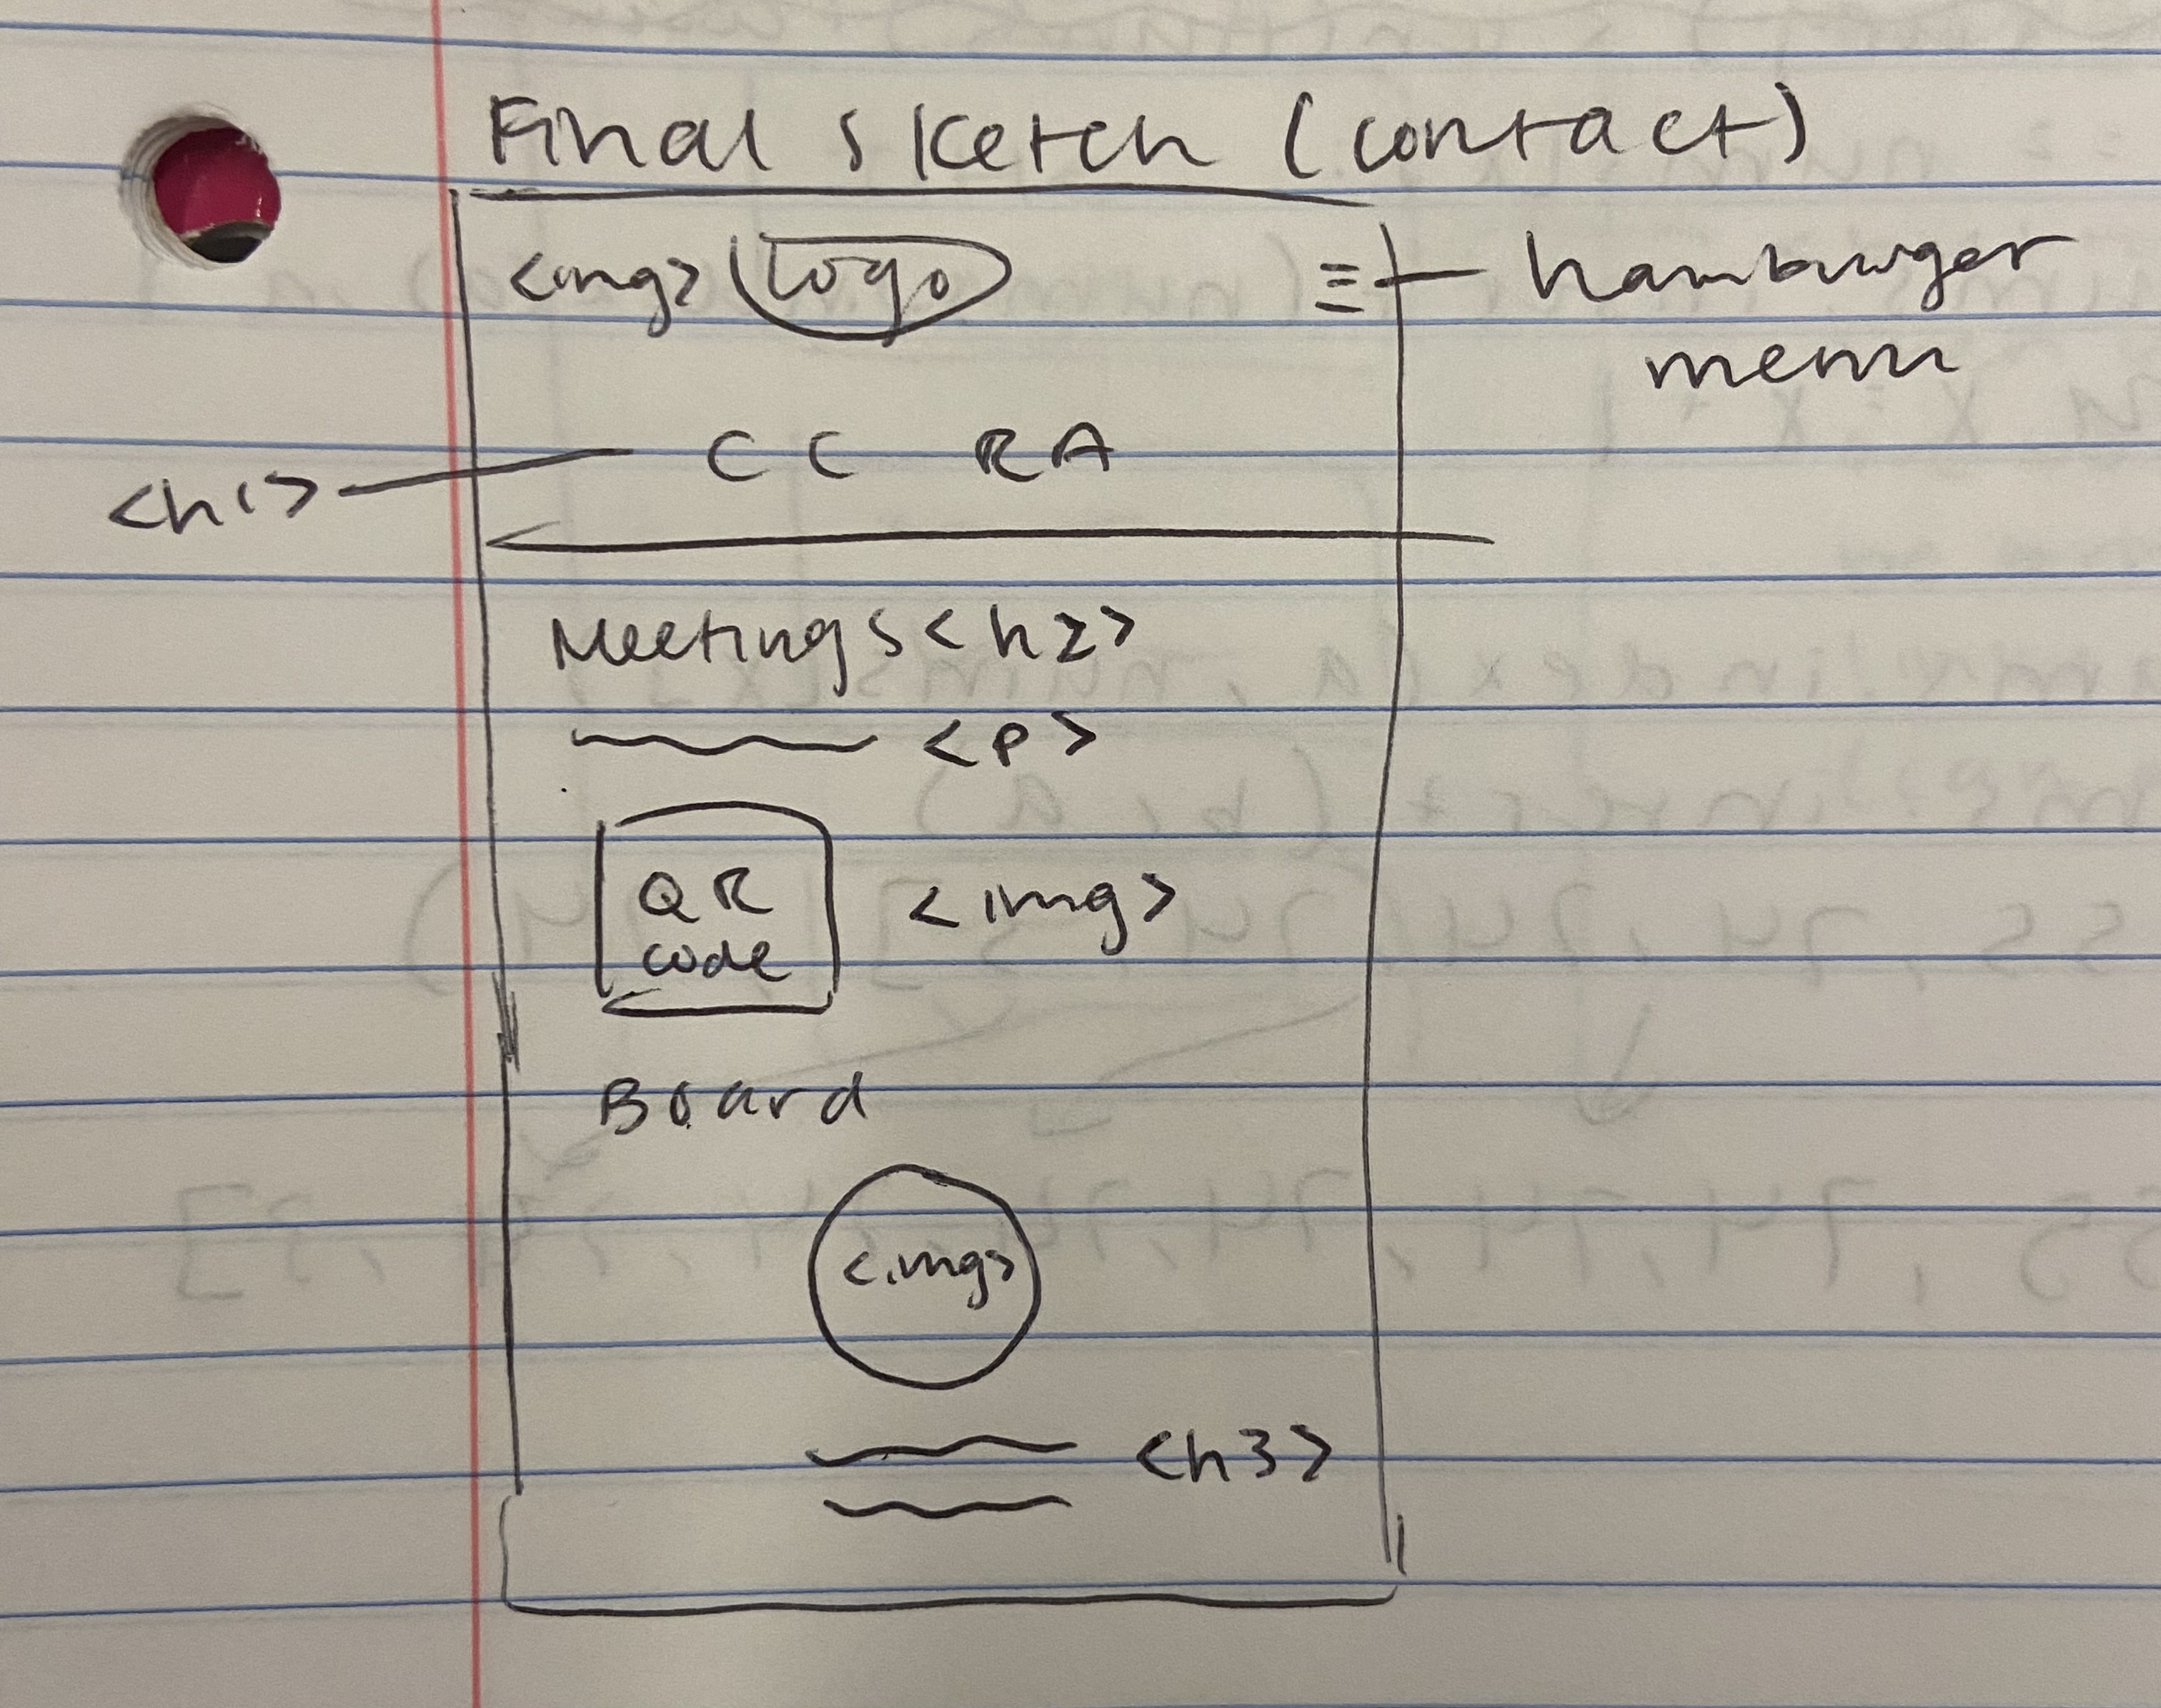 Final sketch (contact)
<img> Logo
hamburger
menu
CC RA
<h1>
Meetings <h2>
<p>
QR
code
<img>
Board
<img>
<h3>